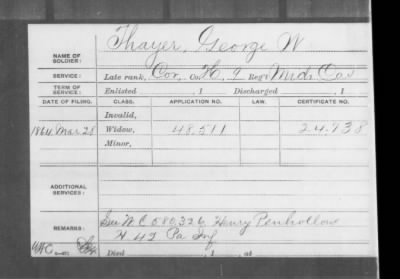 Thayer, George W
NAME OF SOLDIER:
SERVICE: Late rank, Cor, Co. H, 9 Reg't Mich Cav
TERM OF SERVICE: Enlisted , 1 Discharged , 1
DATE OF FILING. CLASS. APPLICATION NO. LAW. CERTIFICATE NO.
Invalid,
1864 Mar 28 Widow, 48,511 24,938
Minor,
ADDITIONAL SERVICES:
REMARKS: See W C 580,326 Henry Penhollow
H 42 Pa Inf
Died , 1 , at